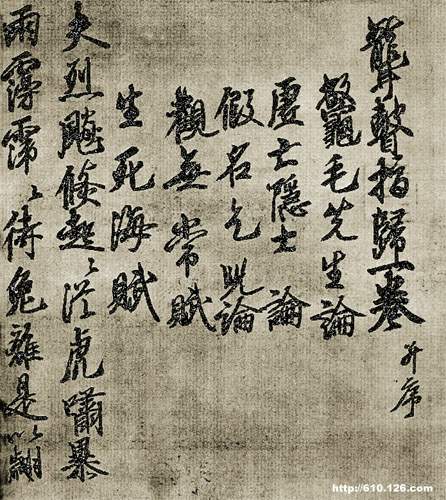 聾瞽指歸一卷 并序
鼈毛先生論
虛亡隱士論
假名乞兒論
觀無常賦
生死海賦
夫烈飈倏起〻從虎嘯暴
雨霶霈〻待兔離是以翩
http://610.126.com